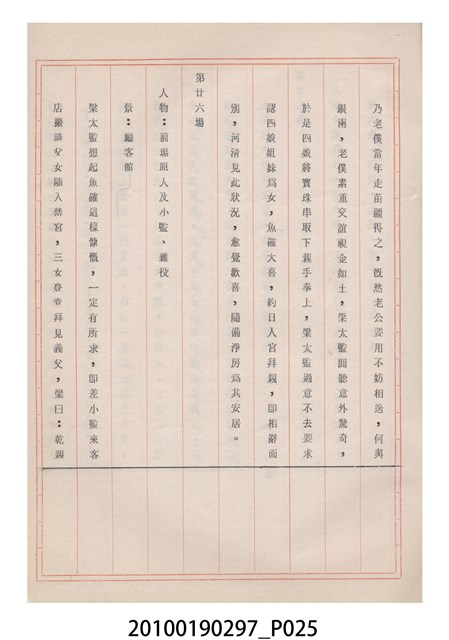 乃老僕當年走苗疆得之，既然老公要用不妨相送，何與
銀兩，老僕素重交誼視金如土，梁太監聞聽意外驚奇，
於是四娘將寶珠串取下親手奉上，梁太監過意不去要求
認四娘姐妹爲女，魚確大喜，約日入宮拜親，即相辭而
別，河清見此狀況，愈覺歡喜，隨備淨房爲其安居。
第廿六場
人物：前場原人及小監、雜役
景：廳客館
梁太監想起魚確這樣慷慨，一定有所求，即差小監來客
店嚴請父女隨入禁宮，三女登堂拜見義父，梁曰：乾親
20100190297_P025